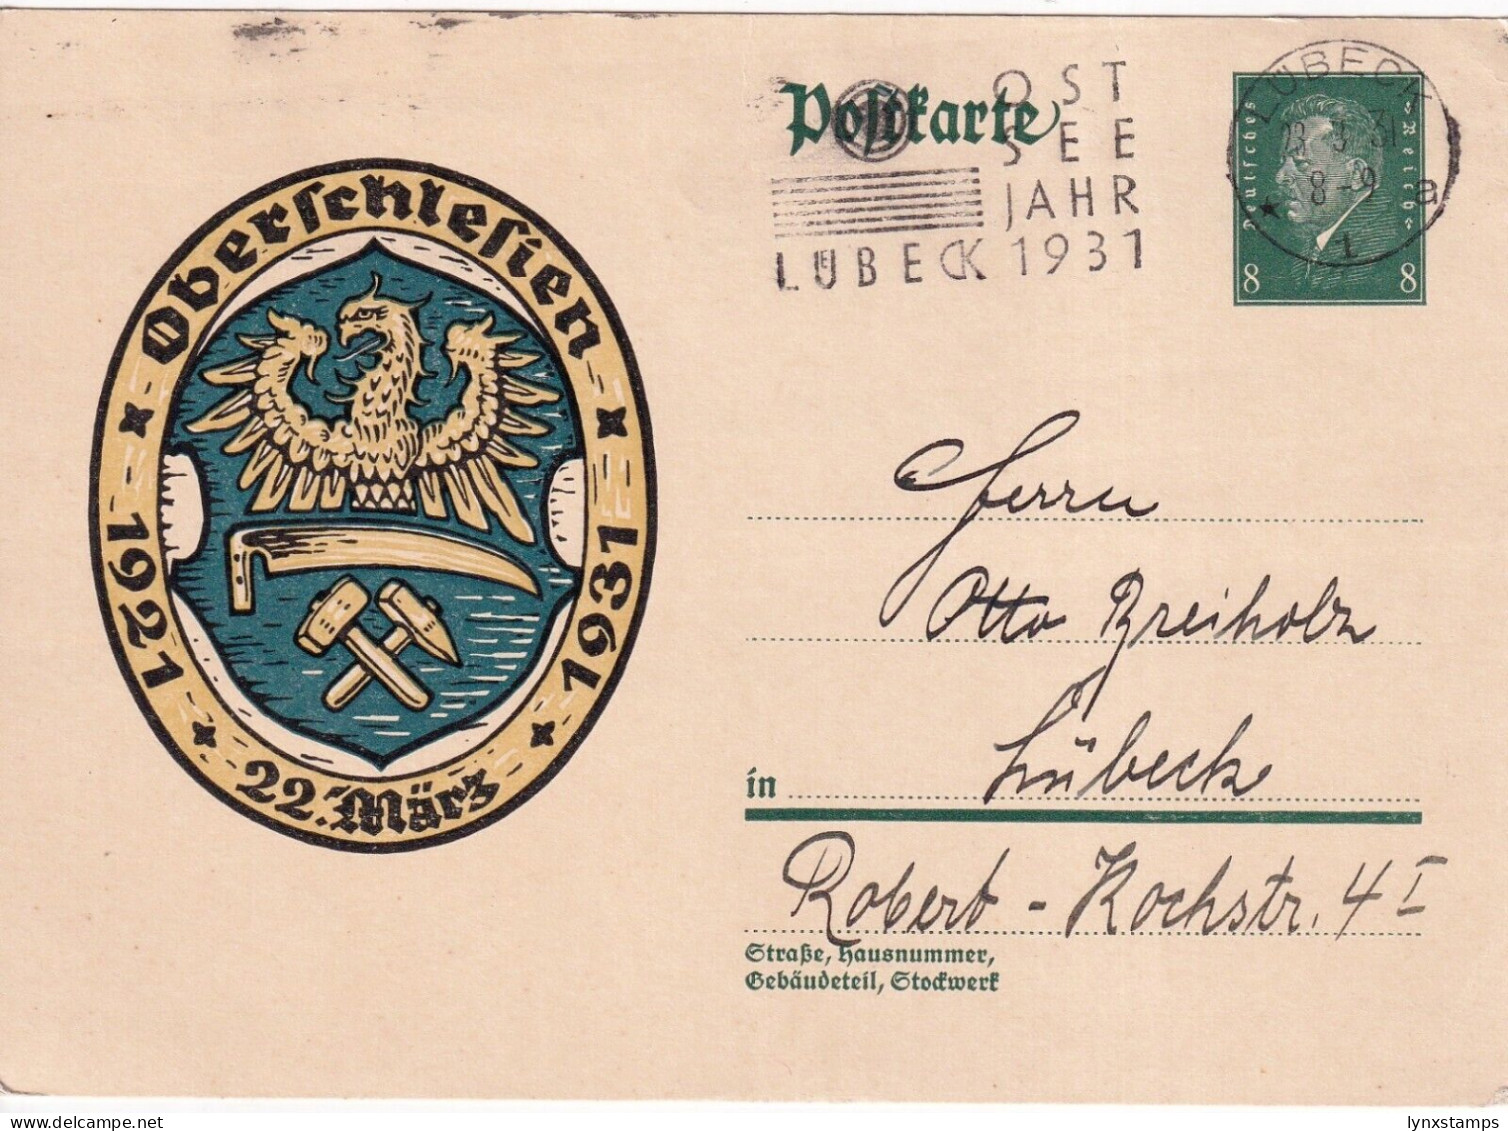 Oberschlesien
1921
1931
22. März
Postkarte
OST
SEE
JAHR
LÜBECK 1931
LÜBECK
23 3 31
8-9 a
1
Deutsches
Reich
8 8
Herrn
Otto Breiholz
in Lübeck
Robert-Kochstr. 4 I
Straße, Hausnummer,
Gebäudeteil, Stockwerk
delcampe.net
lynxstamps